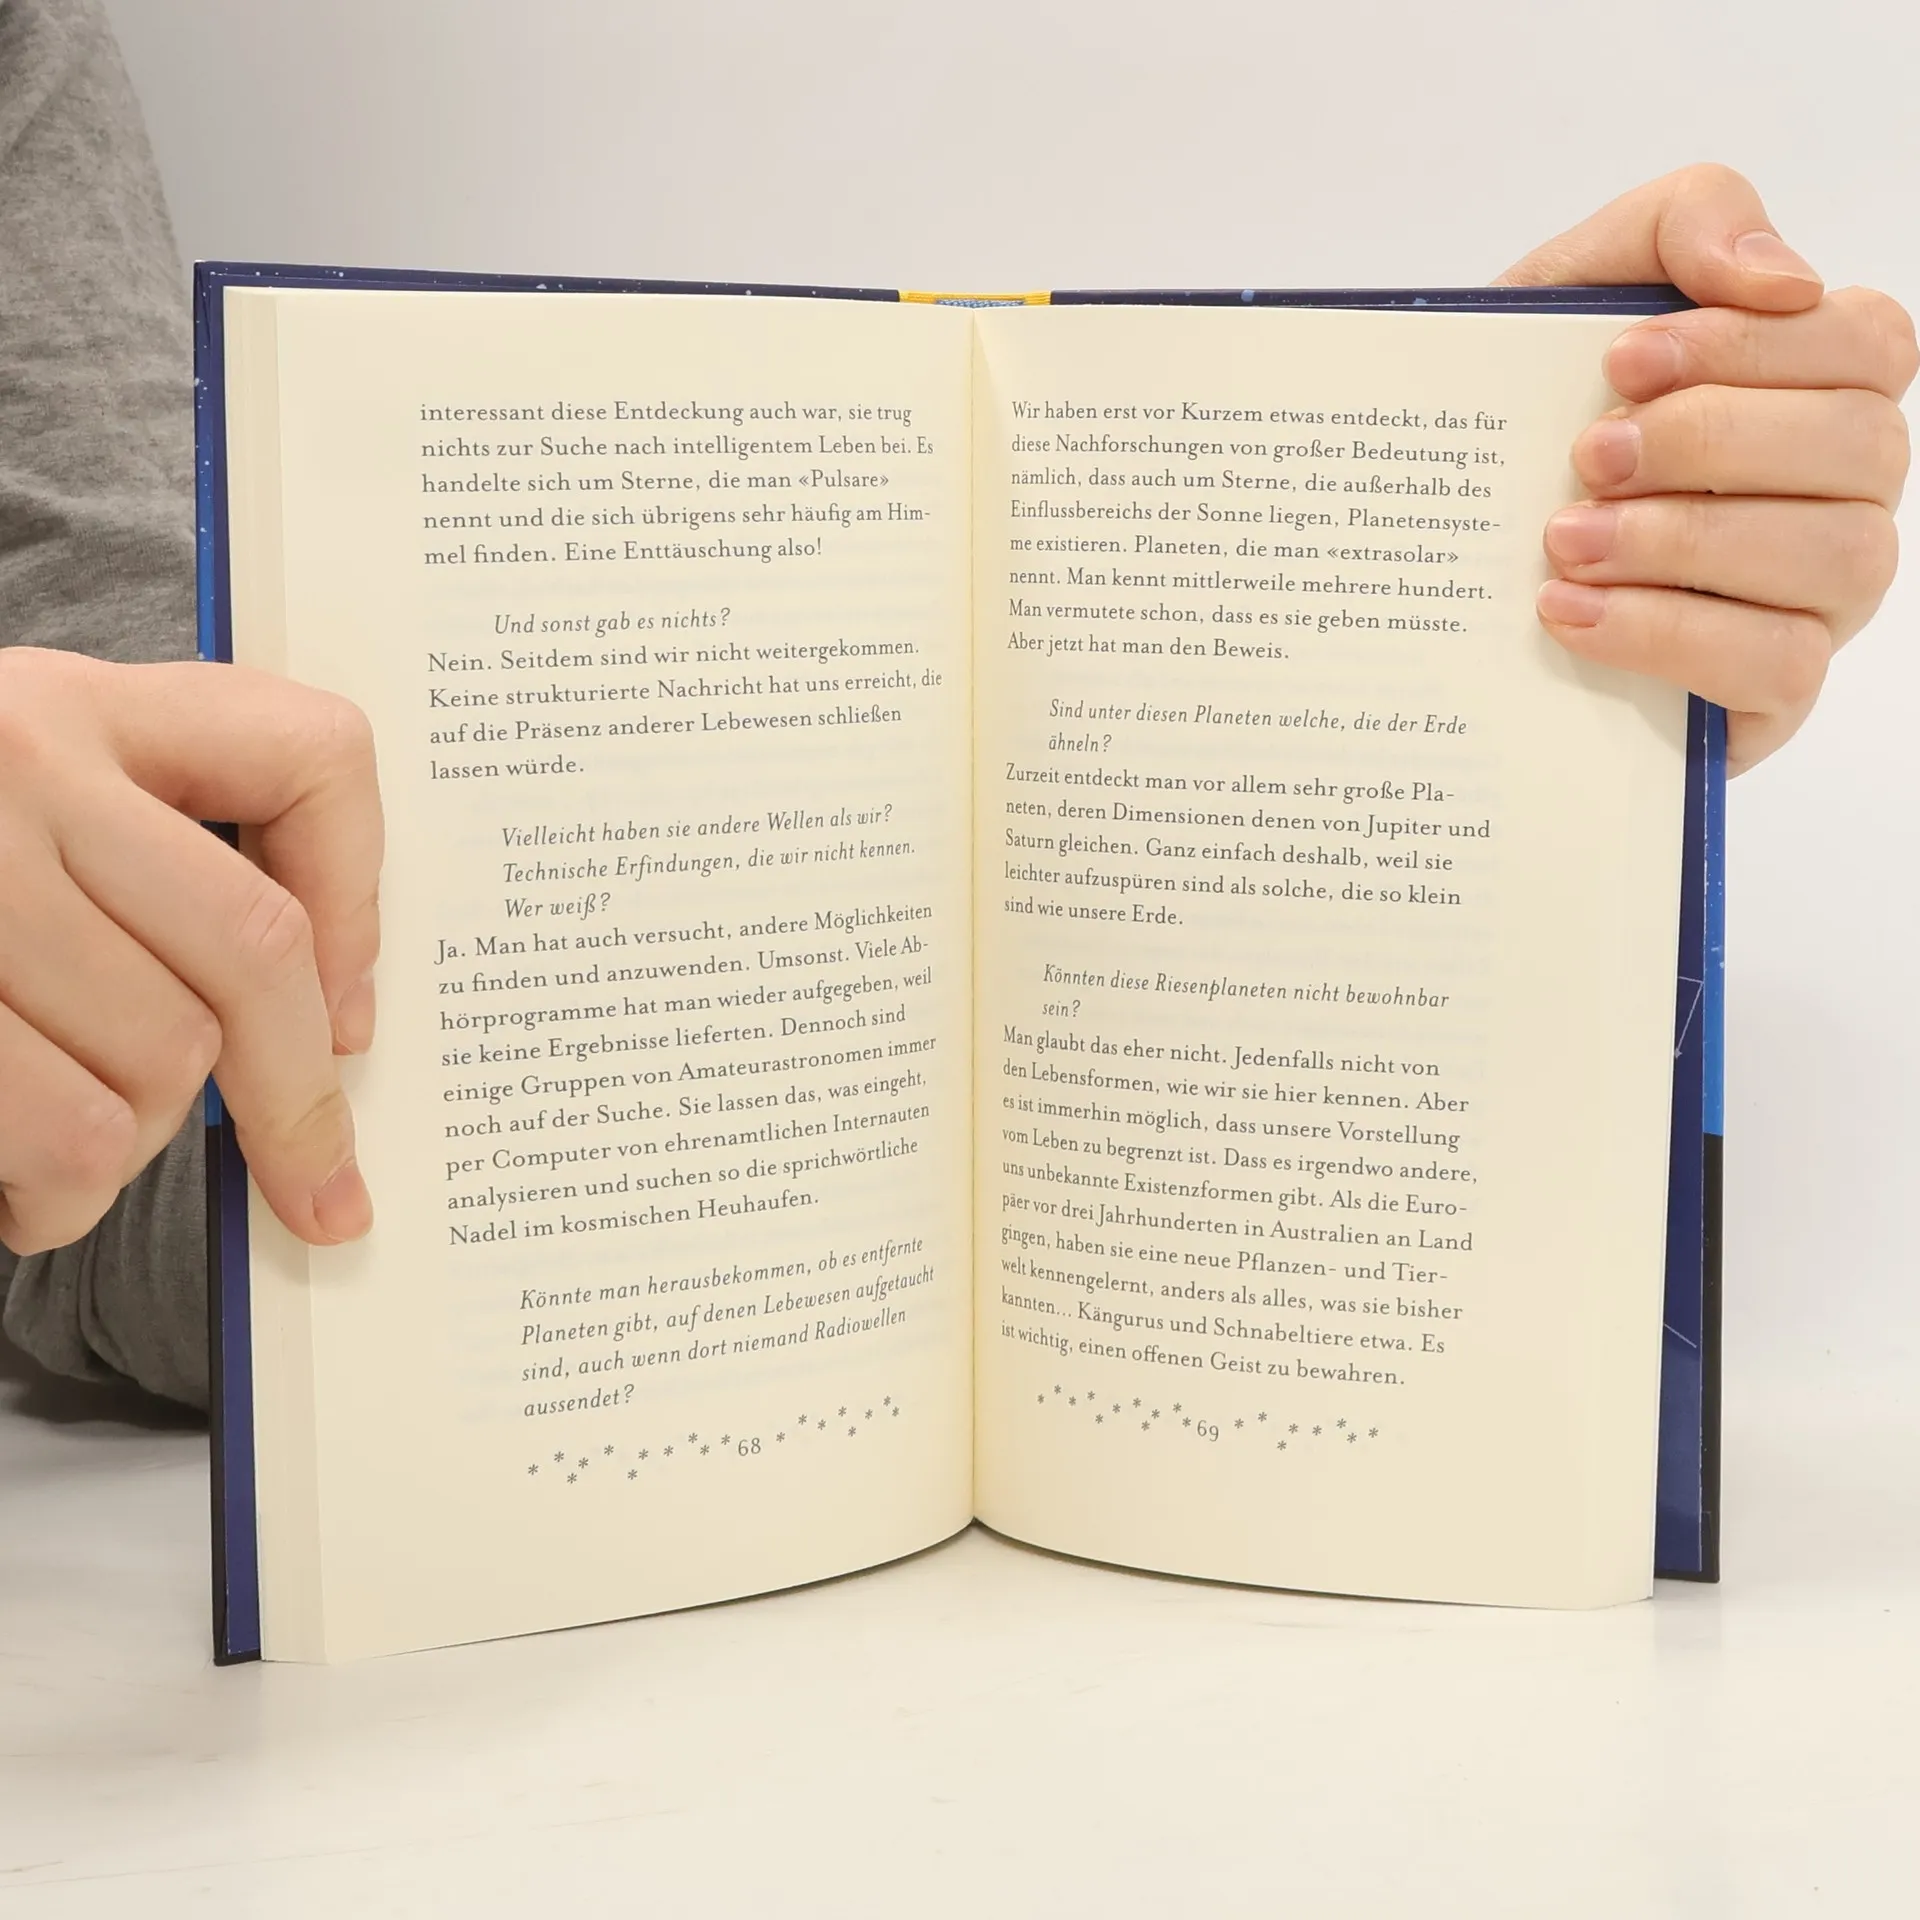 interessant diese Entdeckung auch war, sie trug
nichts zur Suche nach intelligentem Leben bei. Es
handelte sich um Sterne, die man «Pulsare»
nennt und die sich übrigens sehr häufig am Him-
mel finden. Eine Enttäuschung also!
Und sonst gab es nichts?
Nein. Seitdem sind wir nicht weitergekommen.
Keine strukturierte Nachricht hat uns erreicht, die
auf die Präsenz anderer Lebewesen schließen
lassen würde.
Vielleicht haben sie andere Wellen als wir?
Technische Erfindungen, die wir nicht kennen.
Wer weiß?
Ja. Man hat auch versucht, andere Möglichkeiten
zu finden und anzuwenden. Umsonst. Viele Ab-
hörprogramme hat man wieder aufgegeben, weil
sie keine Ergebnisse lieferten. Dennoch sind
einige Gruppen von Amateurastronomen immer
noch auf der Suche. Sie lassen das, was eingeht,
per Computer von ehrenamtlichen Internauten
analysieren und suchen so die sprichwörtliche
Nadel im kosmischen Heuhaufen.
Könnte man herausbekommen, ob es entfernte
Planeten gibt, auf denen Lebewesen aufgetaucht
sind, auch wenn dort niemand Radiowellen
aussendet?
68
Wir haben erst vor Kurzem etwas entdeckt, das für
diese Nachforschungen von großer Bedeutung ist,
nämlich, dass auch um Sterne, die außerhalb des
Einflussbereichs der Sonne liegen, Planetensyste-
me existieren. Planeten, die man «extrasolar»
nennt. Man kennt mittlerweile mehrere hundert.
Man vermutete schon, dass es sie geben müsste.
Aber jetzt hat man den Beweis.
Sind unter diesen Planeten welche, die der Erde
ähneln?
Zurzeit entdeckt man vor allem sehr große Pla-
neten, deren Dimensionen denen von Jupiter und
Saturn gleichen. Ganz einfach deshalb, weil sie
leichter aufzuspüren sind als solche, die so klein
sind wie unsere Erde.
Könnten diese Riesenplaneten nicht bewohnbar
sein?
Man glaubt das eher nicht. Jedenfalls nicht von
den Lebensformen, wie wir sie hier kennen. Aber
es ist immerhin möglich, dass unsere Vorstellung
vom Leben zu begrenzt ist. Dass es irgendwo andere,
uns unbekannte Existenzformen gibt. Als die Euro-
päer vor drei Jahrhunderten in Australien an Land
gingen, haben sie eine neue Pflanzen- und Tier-
welt kennengelernt, anders als alles, was sie bisher
kannten... Kängurus und Schnabeltiere etwa. Es
ist wichtig, einen offenen Geist zu bewahren.
69